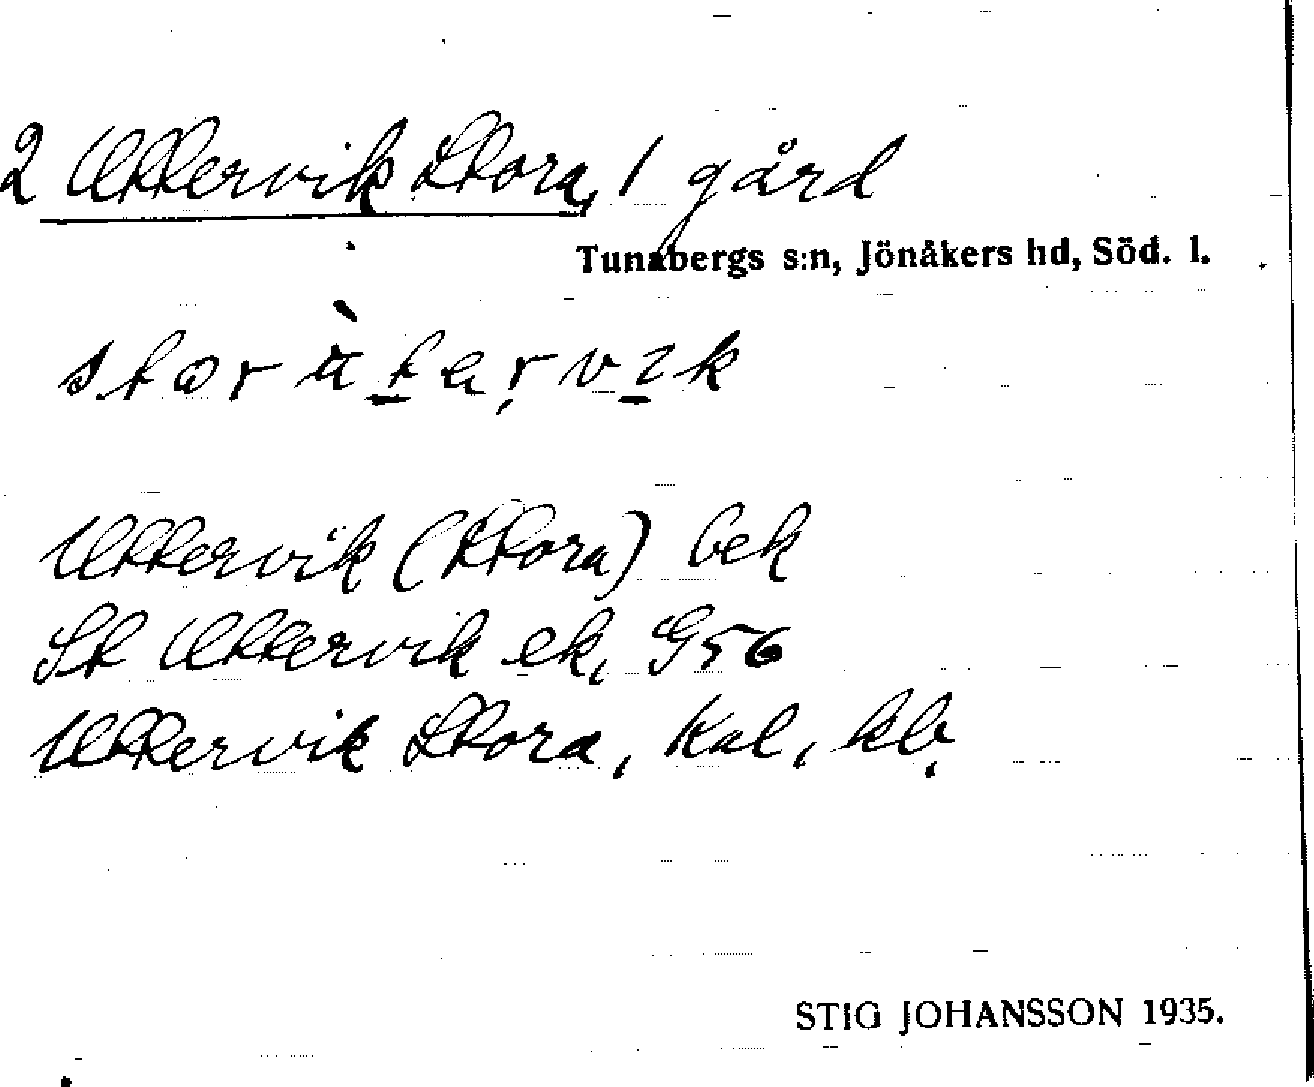 2 Uttervik Stora, 1 gård
Tunabergs s:n, Jönåkers hd, Söd. l.
Uttervik (Stora) bek
St Uttervik ek, G56
Uttervik Stora, Kal, kb,
STIG JOHANSSON 1935.